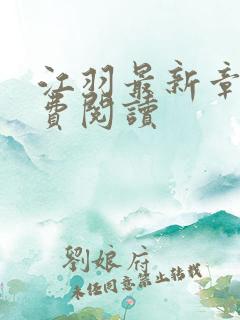 江羽最新章
費閱讀
劉娘府
未经同意禁止转载